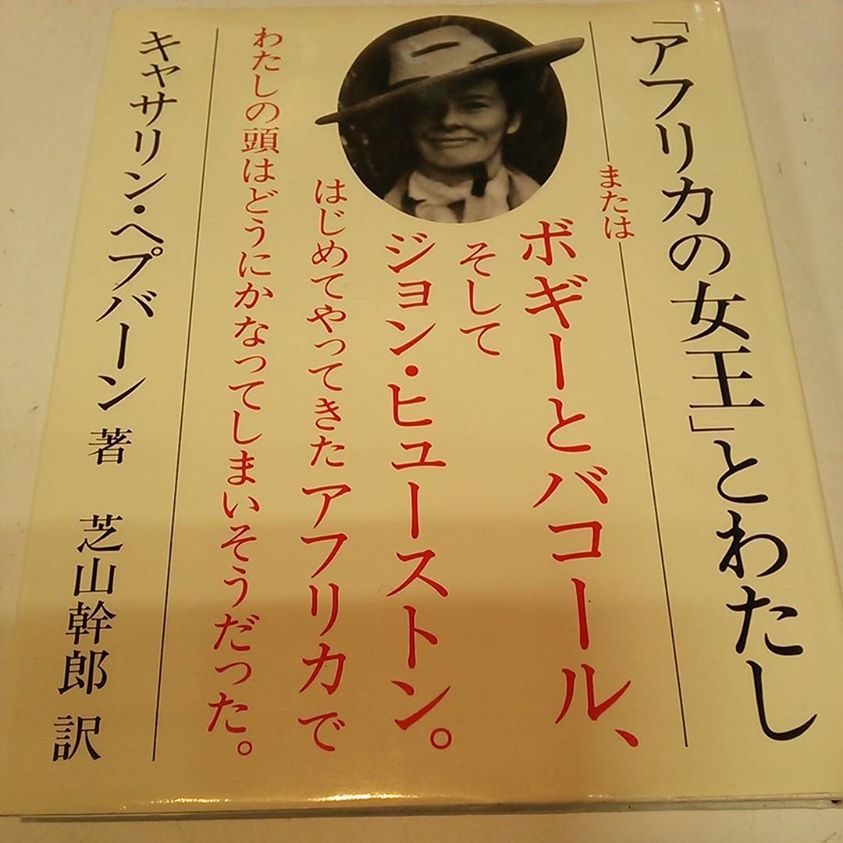 「アフリカの女王」とわたし
または
ボギーとバコール、
そして
ジョン・ヒューストン。
はじめてやってきたアフリカで
わたしの頭はどうにかなってしまいそうだった。
キャサリン・ヘプバーン 著 芝山幹郎 訳